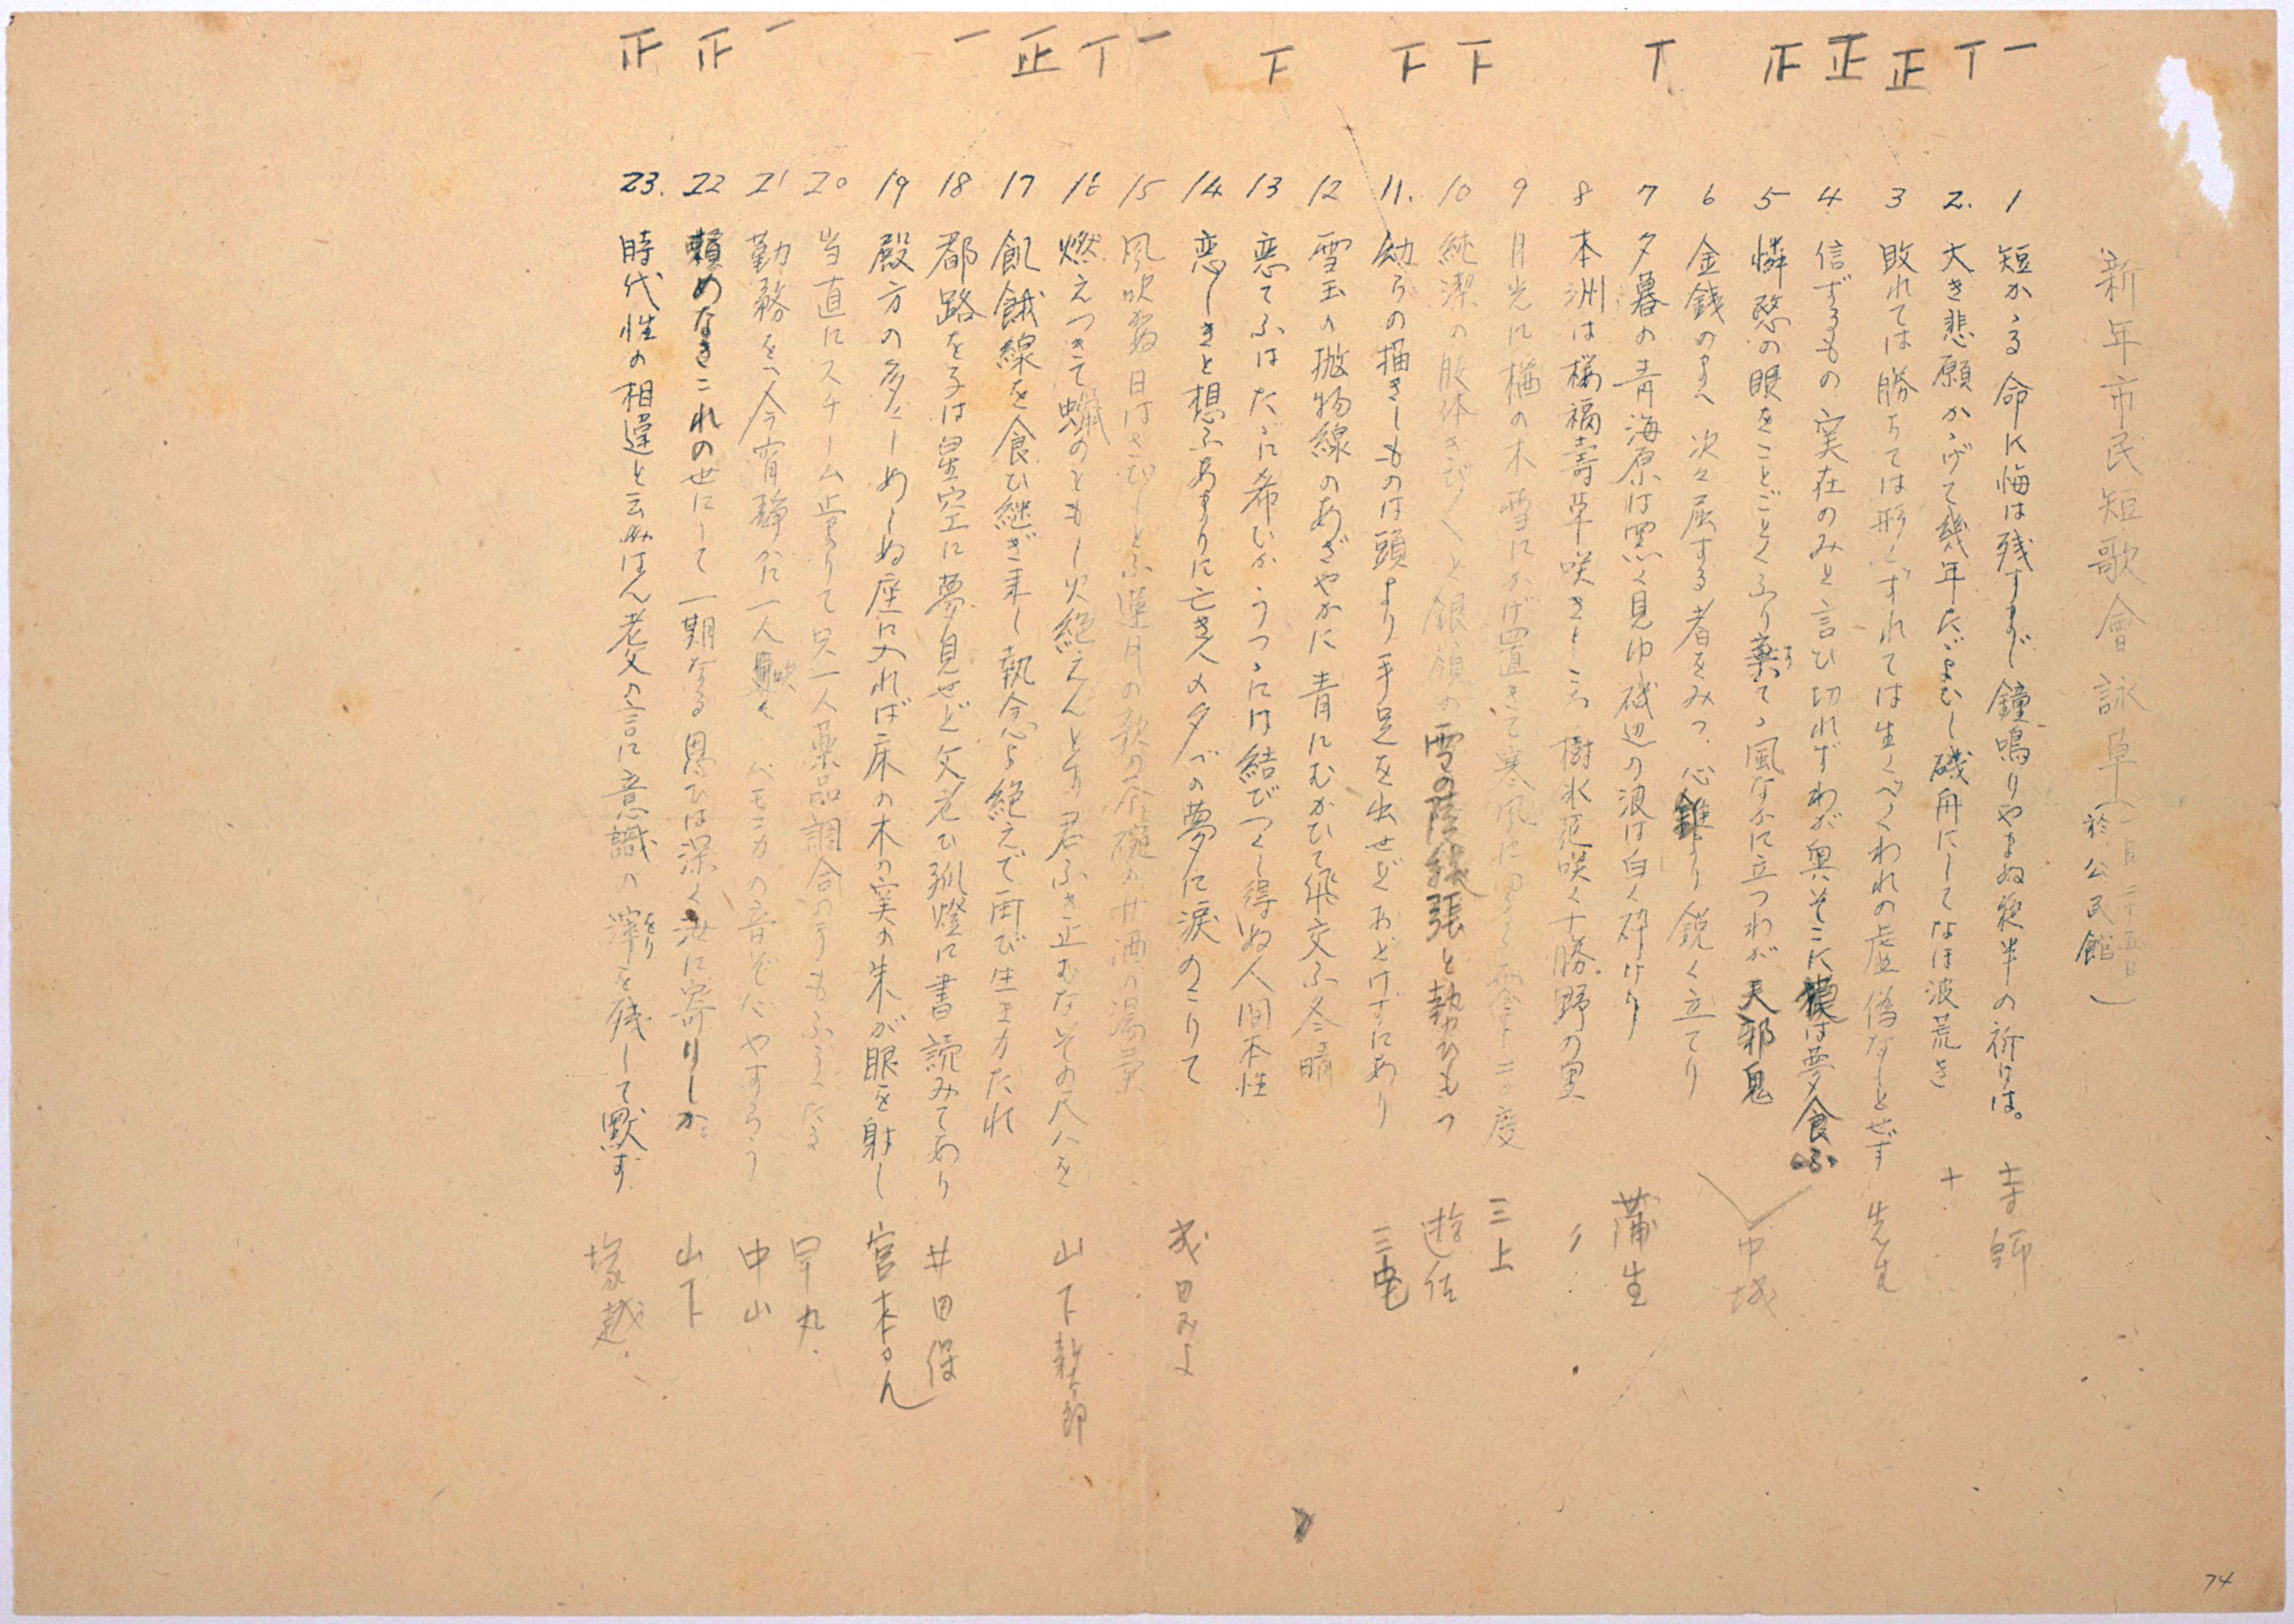 新年市民短歌會詠草(一月二十五日 於公民館)
一 1 短かゝる命に悔は残すまじ鐘鳴りやまぬ夜半の祈りは。 寺師
丅 2. 大き悲願かゝげて幾年たゞよひし磯舟にしてなほ波荒き 〃
正 3 敗れては勝ちては形くずれては生くべくわれの虚偽なしとせず 先生
正 4 信ずるもの実在のみと言ひ切れずわが奥そこに獏は夢食ふ
正 5 憐愍の眼をことごとくふり棄てゝ風なかに立つわが天邪鬼 中城
6 金銭のまへ次々屈する者をみつゝ心錐より鋭く立てり
丅 7 夕暮の青海原は黒く見ゆ磯辺の波は白く砕けり 蒲生
8 本洲は梅福寿草咲きしころ樹氷花咲く十勝野の里 〃
9 月光に楢の木雪にかげ置きて寒風 二〇度 三上
下 10 純潔の肢体きびしくと銀嶺の雪の陵線張と勢ひもつ 遊佐
下 11. 幼らの描きしものは頭より手足を出せどおどけずにあり 三宅
12 雪玉の抛物線のあざやかに青にむかひて飛交ふ冬晴
下 13 恋てふはたゞに希いかうつゝには結びつくし得ぬ人間本性
14 恋しきと想ふあまりに亡き人の夕べの夢に涙のこりて 成田みよ
一 15 風吹かぬ日はさびしとふ蓮月の歌の茶碗の甘酒の湯気
丅 16 燃えつきて蠟のともし火絶えんとす君ふき正むなその尺八を 山下
正 17 飢餓線を食ひ継ぎ来し執念よ絶えで再び生まれたれ
一 18 都路を子は星空に夢見せど父老ひ孤燈に書読みてあり 井田保
19 殿方の多くしめしぬ座に入れば床の木の実の朱が眼を射し 宮本さん
20 当直にスチーム止まりて只一人薬品調合の手もふるへたる 早丸
一 21 勤務を今宵静かに一人吹くハモニカの音ぞ心やすらう 中山
正 22 頼めなきこれの世にして一期なる思ひは深く汝に寄りしか。 山下
正 23. 時代性の相違と云はん老父の言に意識の滓を残して黙す 塚越
74